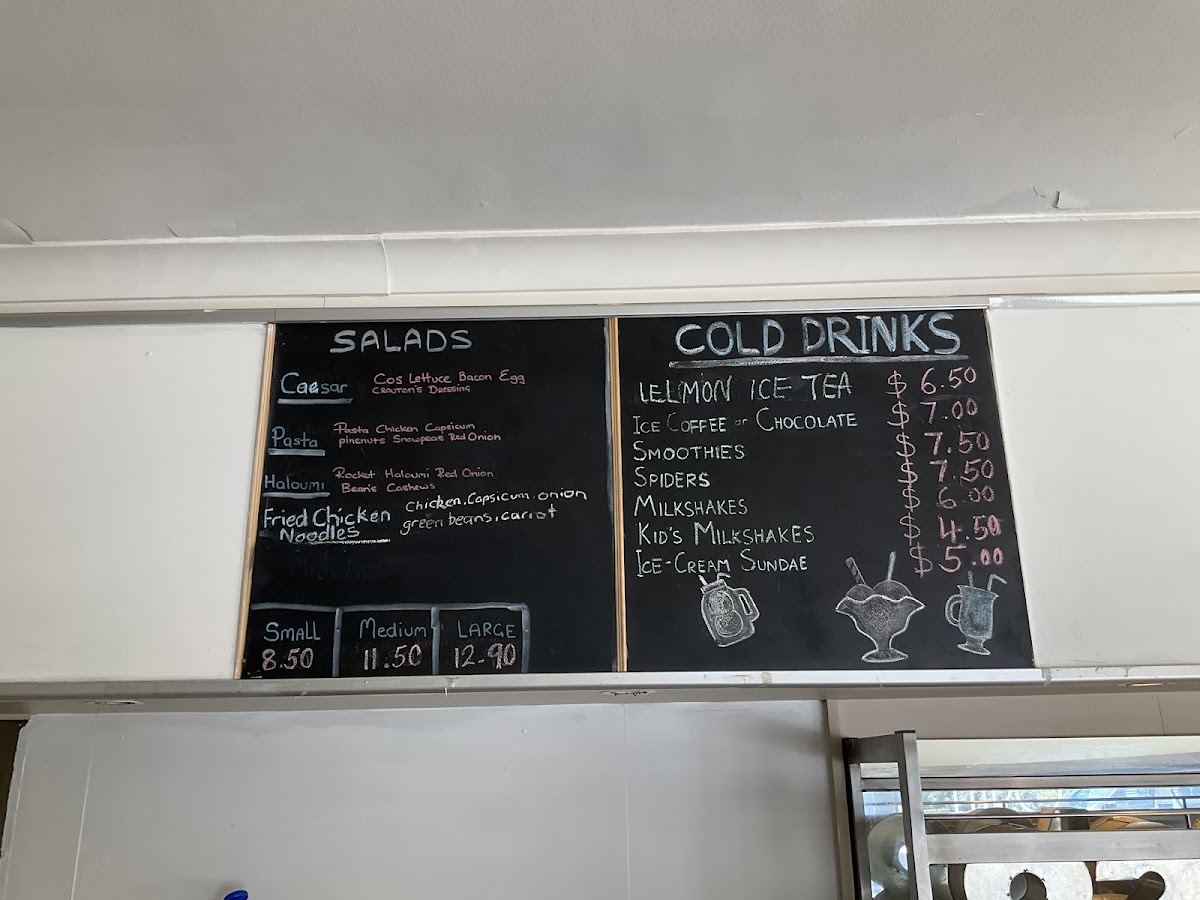 SALADS
Caesar Cos Lettuce Bacon Egg
CROUTON'S DRESSING
Pasta Pasta Chicken Capsicum
pinenuts Snowpeas Red Onion
Haloumi Rocket Haloumi Red Onion
Beans Cashews
Fried Chicken Noodles chicken, Capsicum, onion
green beans, carrot
SMALL Medium LARGE
8.50 11.50 12.90
COLD DRINKS
LELMON ICE TEA $6.50
ICE COFFEE or CHOCOLATE $7.00
SMOOTHIES $7.50
SPIDERS $7.50
MILKSHAKES $6.00
KID'S MILKSHAKES $4.50
ICE-CREAM SUNDAE $5.00